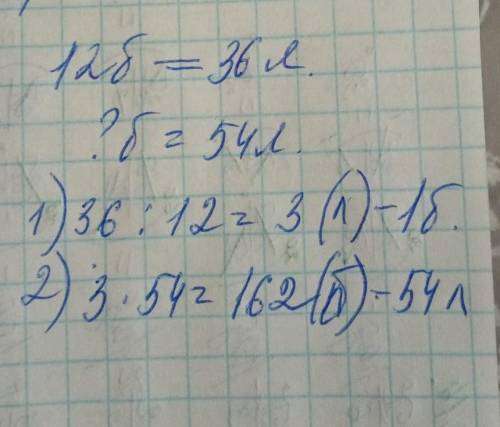 12б = 36л.
?б = 54л.
1) 36 : 12 = 3 (л) - 1б.
2) 3 · 54 = 162 (б) - 54л